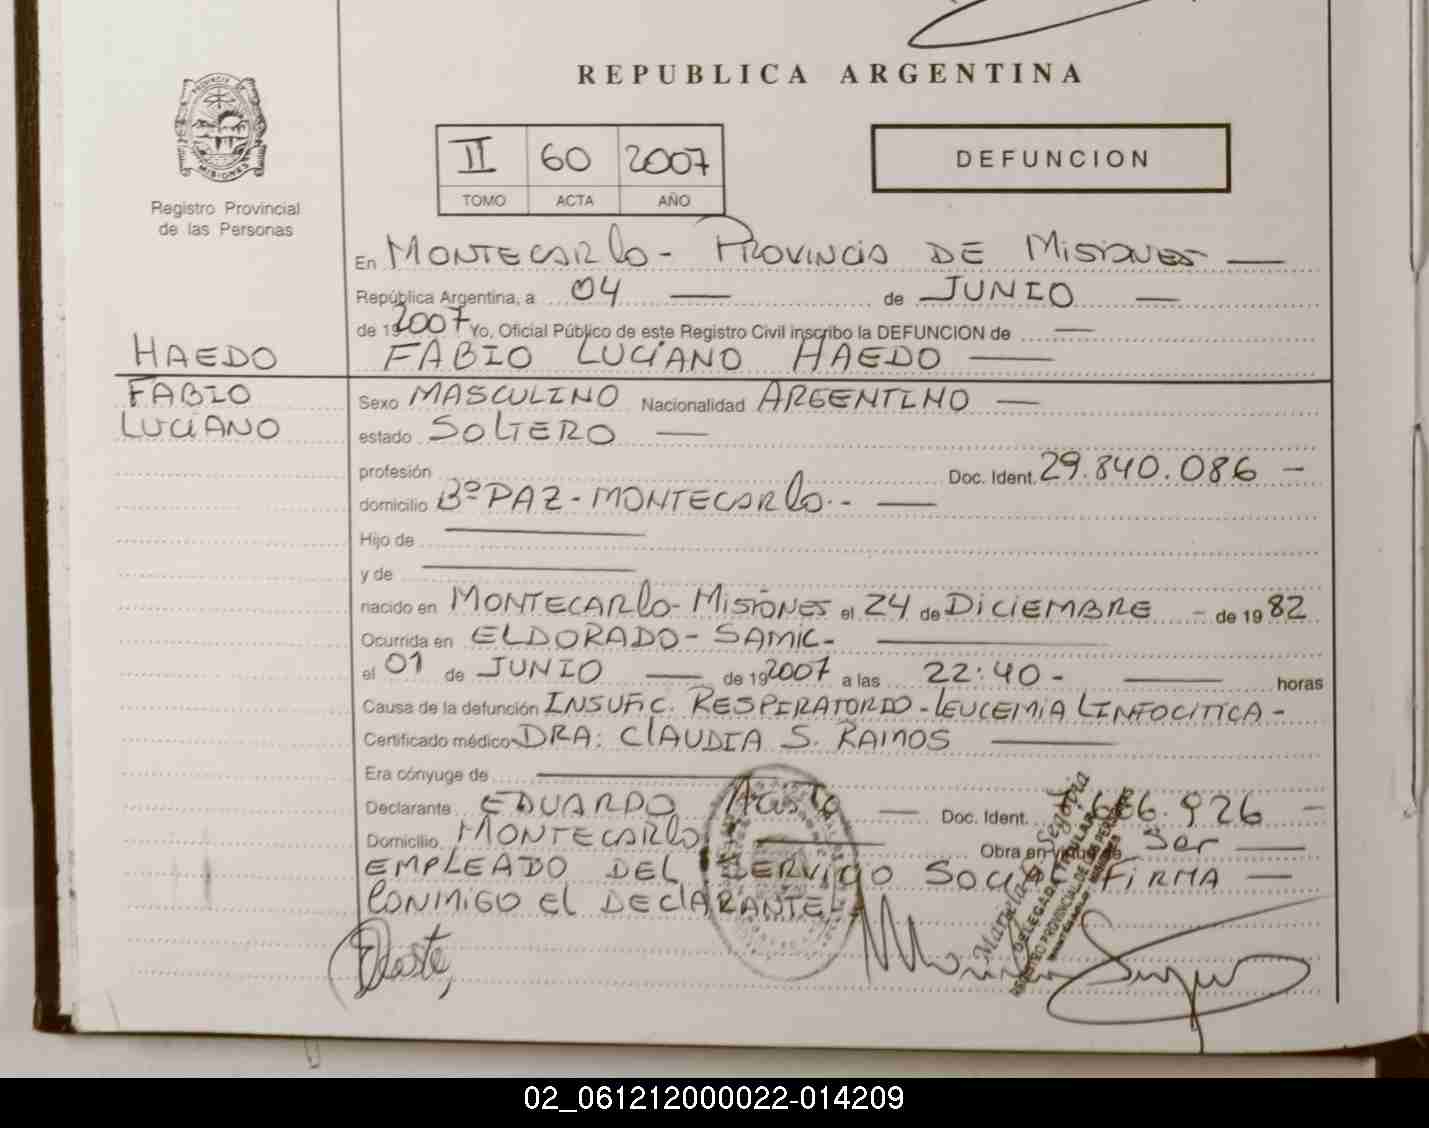 REPUBLICA ARGENTINA
PROVINCIA DE
MISIONES
Registro Provincial
de las Personas
II 60 2007
TOMO ACTA AÑO
DEFUNCION
En MONTECARLO - PROVINCIA DE MISIONES —
República Argentina, a 04 — de JUNIO —
de 192007 Yo, Oficial Público de este Registro Civil inscribo la DEFUNCION de —
HAEDO FABIO LUCIANO HAEDO —
FABIO
LUCIANO
Sexo MASCULINO Nacionalidad ARGENTINO —
estado SOLTERO —
profesión Doc. Ident. 29.840.086 -
domicilio Bº PAZ - MONTECARLO - —
Hijo de —
y de —
nacido en MONTECARLO - MISIONES el 24 de DICIEMBRE - de 1982
Ocurrida en ELDORADO - SAMIC - —
el 01 de JUNIO — de 192007 a las 22:40 - — horas
Causa de la defunción INSUFIC. RESPIRATORIO - LEUCEMIA LINFOCITICA -
Certificado médico DRA: CLAUDIA S. RAMOS —
Era cónyuge de —
Declarante EDUARDO — Doc. Ident. 926 -
Domicilio MONTECARLO — Obra en virtud de Ser —
EMPLEADO DEL SERVICIO SOCIAL FIRMA —
CONMIGO EL DECLARANTE
02_061212000022-014209